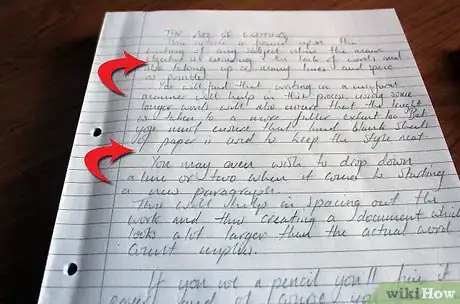 The Joy of writing
This article is based upon the
writing of any subject where the main
objective is extending the lack of words and
also taking up as many lines and space
as possible.
You will find that writing in a uniform
manner will help in that process using some
longer words will also ensure that the length
is taken to a more fuller extent too. But
you must ensure that lined blank sheets
of paper is used to keep the style neat
You may even wish to drop down
a line or two when it comes to starting
a new paragraph.
This will help in spacing out the
work and thus creating a document which
looks alot larger than the actual word
count implies.
If you use a pencil you'll
wikiHow